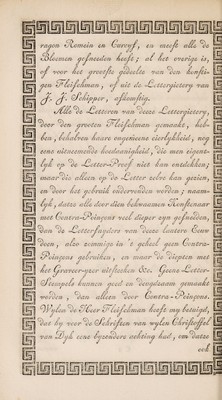 ragen Romein en Curcyf, en meest alle de
Bloemen gesneeden heeft; al het overige is,
of voor het grootste gedeelte van den konsti-
gen Fleischman, of uit de Lettergietery van
J. J. Schipper, afkomstig.
Alle de Letteren van deeze Lettergietery,
door den grooten Fleischman gemaakt, heb-
ben, behalven haare ongemeene cierlykheid, nog
eene uitneemende hoedanigheid, die men eigent-
lyk op de Letter-Proef niet kan ontdekken;
maar die alleen op de Letter zelve kan gezien,
en door het gebruik ondervonden werden; naam-
lyk, datze alle door dien bekwaamen Konstenaar
met Contra-Poinçons veel dieper zyn gesneeden,
dan de Lettersnyders van deeze landere Eeuw
doen, alzo sommige in 't geheel geen Contra-
Poinçons gebruiken, en maar de diepten met
het Graveer-yzer uitsteeken &c. Geene Letter-
Stempels kunnen goed en deugdzaam gemaakt
werden, dan alleen door Contra-Poinçons.
Wylen de Heer Fleischman heeft my betuigd,
dat hy voor de Schriften van wylen Christoffel
van Dyk eene byzondere achting had, om datze
ook